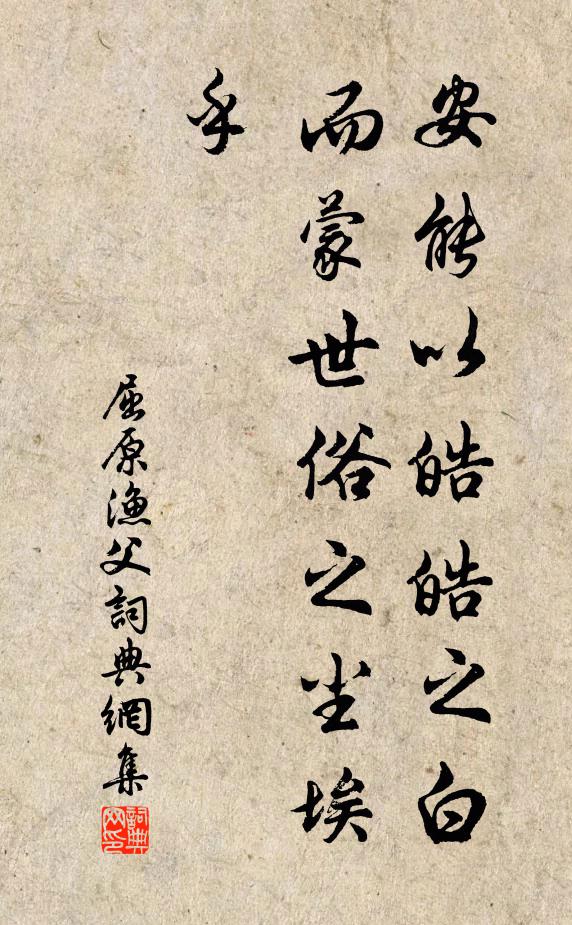 安能以皓皓之白
而蒙世俗之尘埃
乎
屈原漁父詞典網集
詞典网印